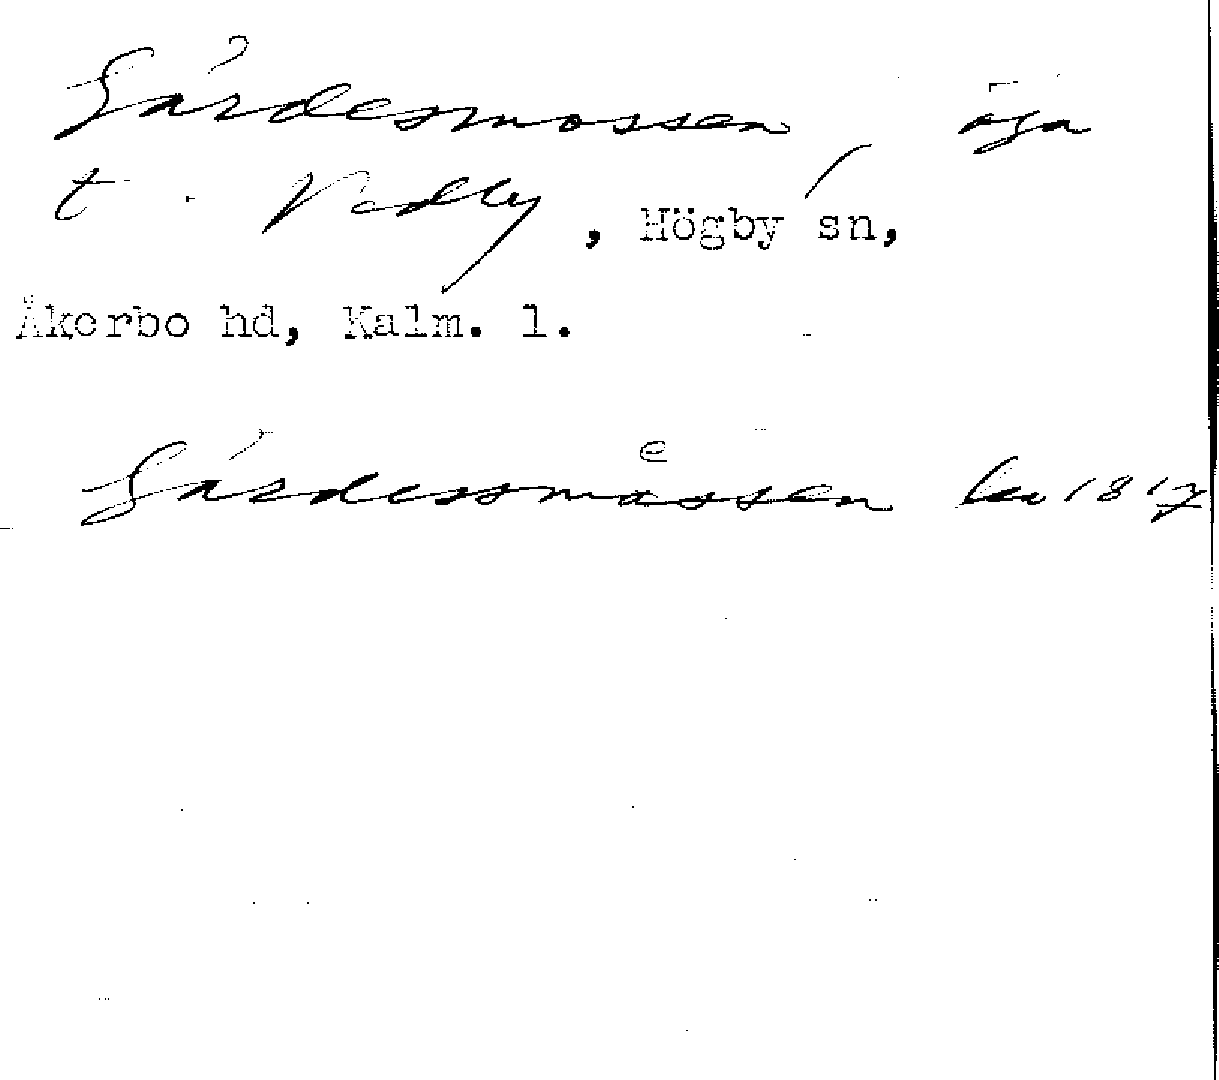 Gårdesmossen, äga
t. Vedby, Högby sn,
Åkerbo hd, Kalm. l.
Gårdessmåssen lsv 1817